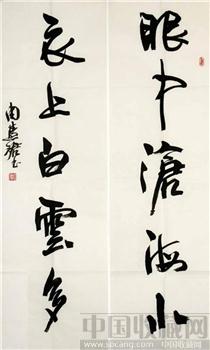 眼中滄海小
衣上白雲多
中国收藏网
www.spcang.com 中国收藏网